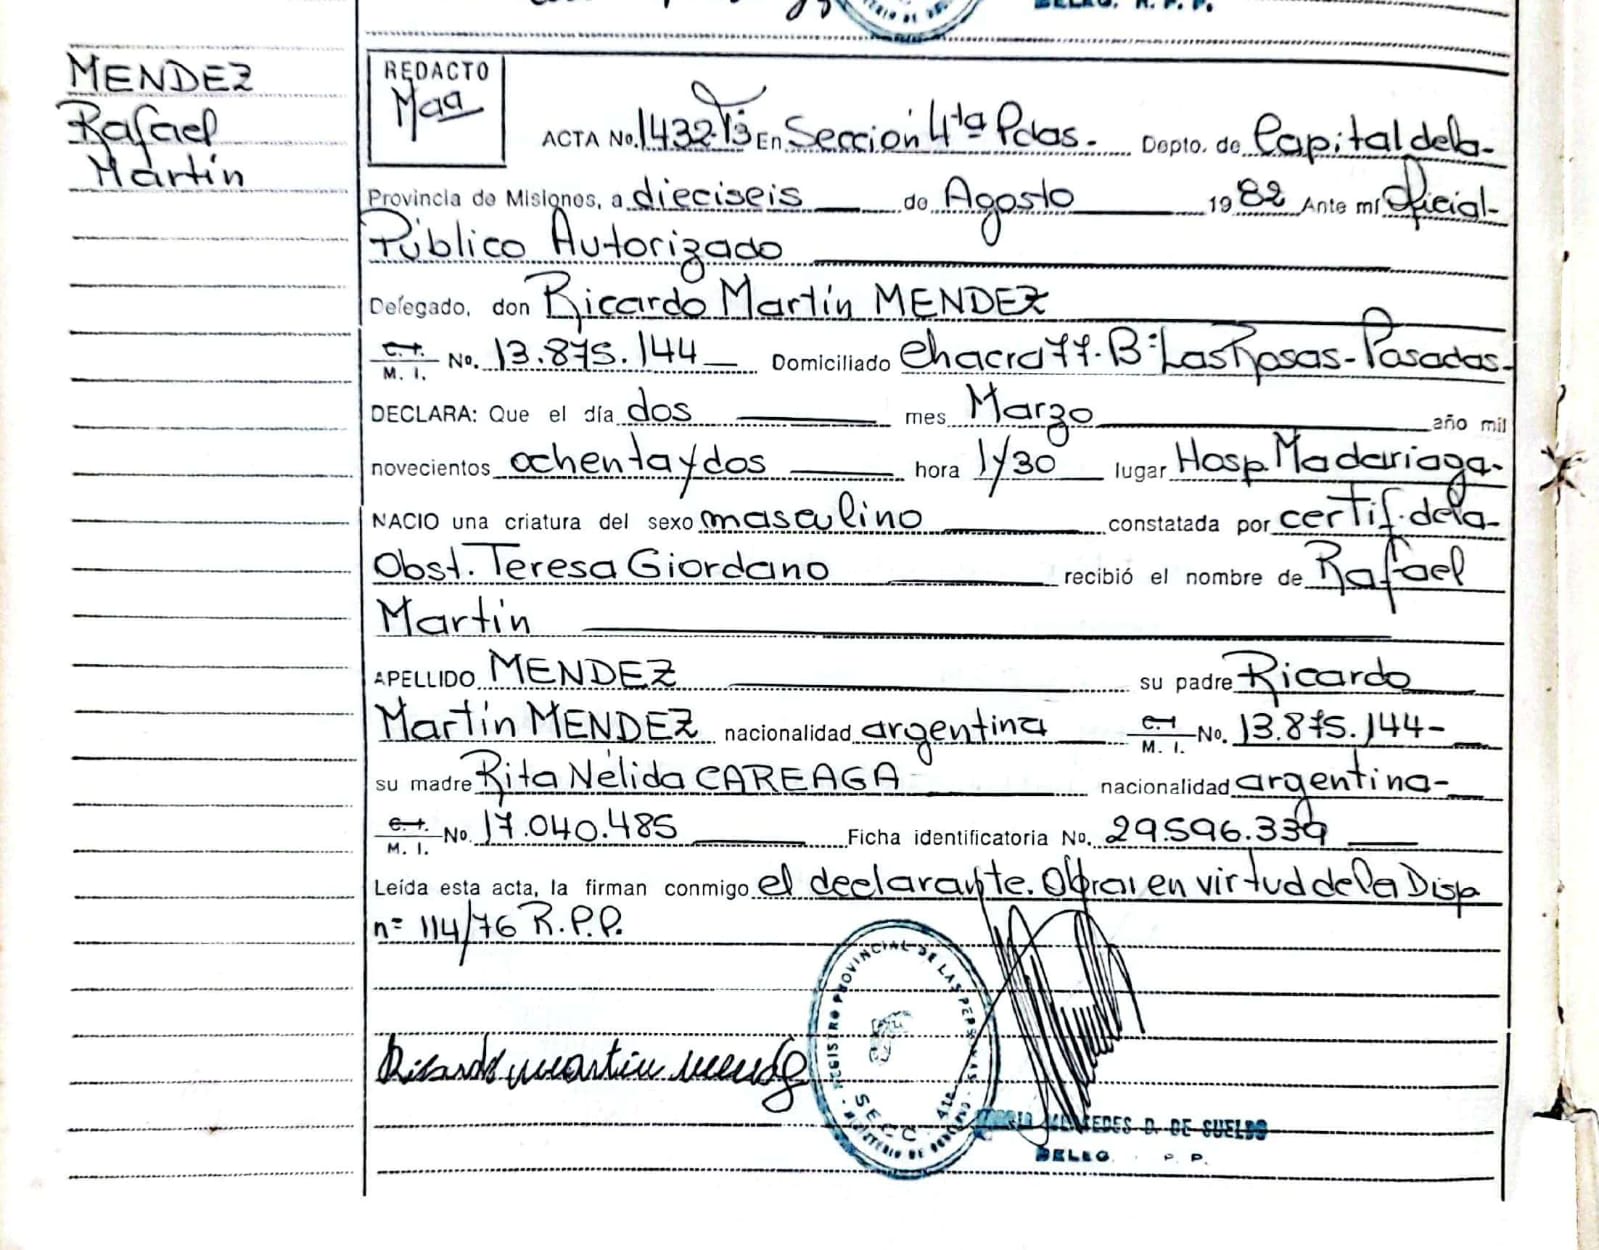 MENDEZ
Rafael
Martín
REDACTO
ACTA No. 1432 T3 En Sección 4ta Pdas. Depto. de Capital de la
Provincia de Misiones, a dieciseis de Agosto 1982 Ante mí Oficial
Público Autorizado
Delegado, don Ricardo Martín MENDEZ
M. I. No. 13.875.144 Domiciliado Chacra 77. B: Las Rosas - Posadas.
DECLARA: Que el día dos mes Marzo año mil
novecientos ochenta y dos hora 1/30 lugar Hosp. Madariaga.
NACIO una criatura del sexo masculino constatada por certif. de la
Obst. Teresa Giordano recibió el nombre de Rafael
Martín
APELLIDO MENDEZ su padre Ricardo
Martín MENDEZ nacionalidad argentina M. I. No. 13.875.144-
su madre Rita Nélida CAREAGA nacionalidad argentina-
M. I. No. 17.040.485 Ficha identificatoria No. 29.596.339
Leída esta acta, la firman conmigo el declarante. Obrai en virtud de la Disp
nº 114/76 R.P.P.
Ricardo Martin Mendez
REGISTRO PROVINCIAL DE LAS PERSONAS
SECC. 4ta
MINISTERIO DE GOBIERNO
MERCEDES D. DE SUELDO
DELEG. P. P.